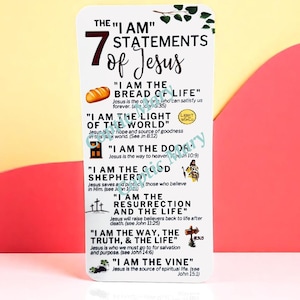 THE "I AM"
7 STATEMENTS
of Jesus
"I AM THE
BREAD OF LIFE"
Jesus is the only one that can satisfy us
forever. 6:35)
"I AM THE LIGHT
OF THE WORLD"
Jesus is hope and source of goodness
(See in 8:12)
"I AM THE DOOR"
Jesus is the way to heaven 10:9)
"I AM THE GOOD
SHEPHERD"
Jesus saves and those who believe
in Him. (see
"I AM THE
RESURRECTION
AND THE LIFE"
Jesus will raise believers back to life after
death. (see John 11:25)
"I AM THE WAY, THE
TRUTH, & THE LIFE"
Jesus is who we must go to for salvation
and purpose. (see John 14:6)
"I AM THE VINE"
Jesus is the source of spiritual life. (see
John 15:5)